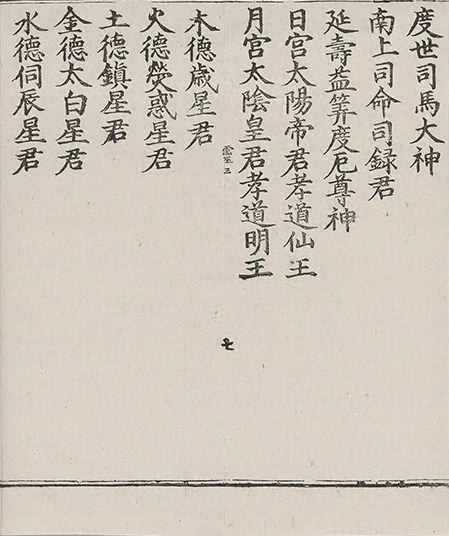 度世司馬大神
南上司命司録君
延壽益筭度厄尊神
日宮太陽帝君孝道仙王
月宮太陰皇君孝道明王
木德歲星君
火德熒惑星君
土德鎮星君
金德太白星君
水德伺辰星君